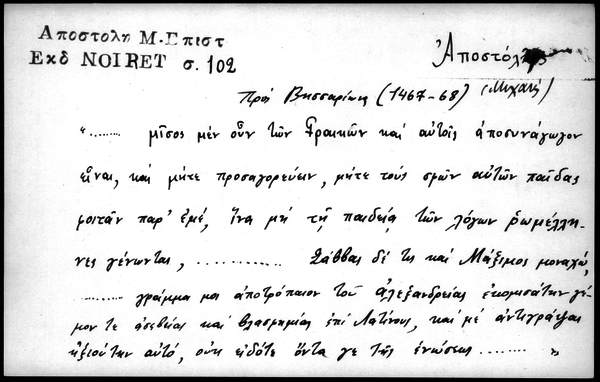 Αποστολη Μ. Επιστ
Εκδ NOIRET σ. 102
Ἀποστόλης
(Μιχαήλ)
Πρός Βησσαρίωνα (1467-68)
"........ μῖσος μέν οὖν τῶν Γραικῶν καί αὐτοῖς ἀποσυνάγωγον
εἶναι, καί μήτε προσαγορεύειν, μήτε τούς σφῶν αὐτῶν παῖδας
φοιτᾶν παρ' ἐμέ, ἵνα μή τῇ παιδείᾳ τῶν λόγων ῥωμέλλη-
νες γένωνται, ............. Σάββας δέ τις καί Μάξιμος μοναχώ,
......... γράμμα μοι ἀποτρόπαιον τοῦ ἀλεξανδρείας ἐκομισάτην γέ-
μον τε ἀσεβείας καί βλασφημίας ἐπί Λατίνους, καί μέ ἀντιγράψαι
ἠξιούτην αὐτό, οὐκ εἰδότε ὄντα γε τῆς ἑνώσεως ........ "